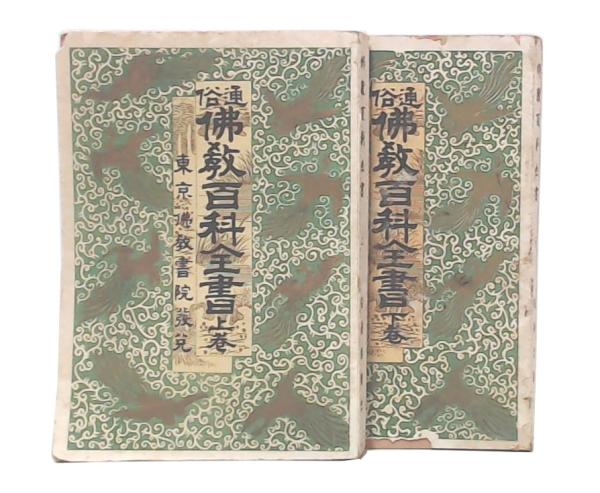 通俗
佛教百科全書 上巻
東京 佛教書院發兌
通俗
佛教百科全書 下巻